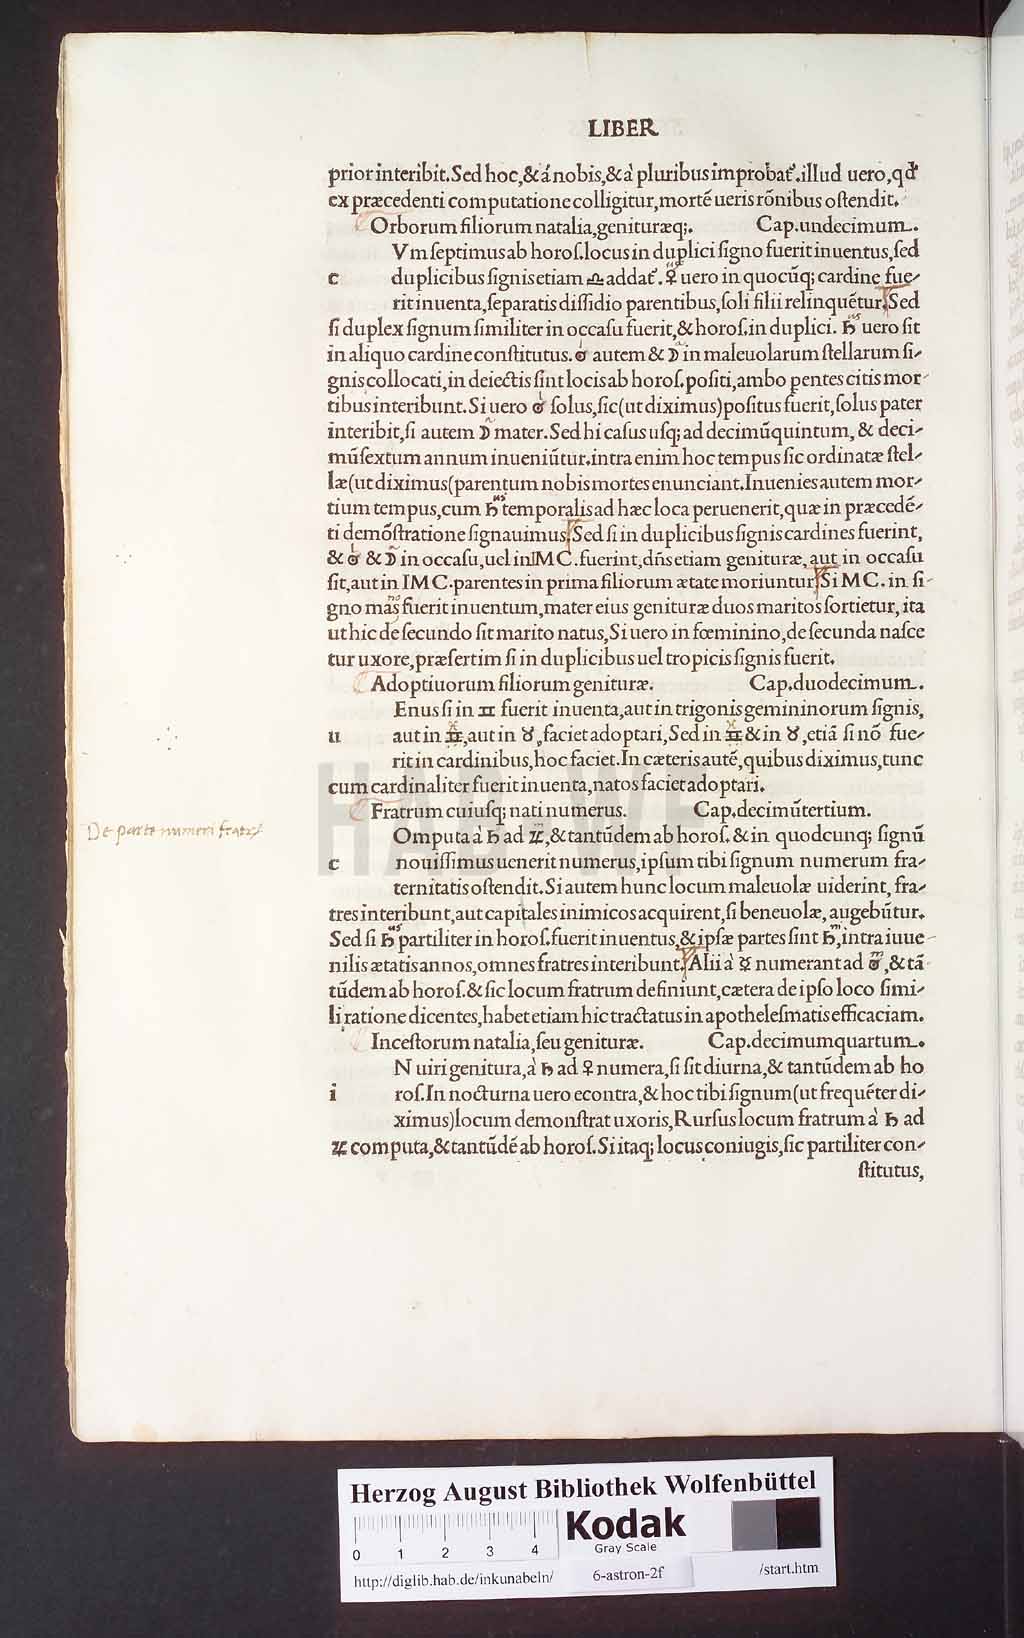 LIBER
prior interibit. Sed hoc, & á nobis, & à pluribus improbat᷑. illud uero, qd᷑
ex præcedenti computatione colligitur, morté ueris rōnibus oſtendit.
Orborum filiorum natalia, genituræq;. Cap. undecimum.
Vm ſeptimus ab horoſ. locus in duplici ſigno fuerit inuentus, ſed
c duplicibus ſignis etiam ♎ addat᷑. ♀ uero in quocūq; cardine fue-
rit inuenta, ſeparatis diſſidio parentibus, ſoli filii relinquētur. Sed
ſi duplex ſignum ſimiliter in occaſu fuerit, & horoſ. in duplici. ♄ uero ſit
in aliquo cardine conſtitutus. ☉ autem & ☽ in maleuolarum ſtellarum ſi-
gnis collocati, in deiectis ſint locis ab horoſ. poſiti, ambo pentes citis mor-
tibus interibunt. Si uero ☉ ſolus, ſic (ut diximus) poſitus fuerit, ſolus pater
interibit, ſi autem ☽ mater. Sed hi caſus uſq; ad decimūquintum, & deci-
mūſextum annum inueniūtur. intra enim hoc tempus ſic ordinatæ ſtel-
læ (ut diximus (parentum nobis mortes enunciant. Inuenies autem mor-
tium tempus, cum ♄ temporalis ad hæc loca peruenerit, quæ in præcedé-
ti demōſtratione ſignauimus. Sed ſi in duplicibus ſignis cardines fuerint,
& ☉ & ☽ in occaſu, uel in IMC. fuerint, dñs etiam genituræ, aut in occaſu
ſit, aut in IMC. parentes in prima filiorum ætate moriuntur. Si MC. in ſi-
gno maſ fuerit inuentum, mater eius genituræ duos maritos ſortietur, ita
ut hic de ſecundo ſit marito natus, Si uero in fœminino, de ſecunda naſce
tur uxore, præſertim ſi in duplicibus uel tropicis ſignis fuerit.
Adoptiuorum filiorum genituræ. Cap. duodecimum.
Enus ſi in ♊ fuerit inuenta, aut in trigonis gemininorum ſignis,
u aut in ♊, aut in ♉, faciet adoptari, Sed in ♊ & in ♉, etiā ſi nō fue-
rit in cardinibus, hoc faciet. In cæteris auté, quibus diximus, tunc
cum cardinaliter fuerit inuenta, natos faciet adoptari.
Fratrum cuiuſq; nati numerus. Cap. decimūtertium.
De parte numeri fratrū
Omputa à ♄ ad ♃, & tantūdem ab horoſ. & in quodcunq; ſignū
c nouiſſimus uenerit numerus, ipſum tibi ſignum numerum fra-
ternitatis oſtendit. Si autem hunc locum maleuolæ uiderint, fra-
tres interibunt, aut capitales inimicos acquirent, ſi beneuolæ, augebūtur.
Sed ſi ♄ partiliter in horoſ. fuerit inuentus, & ipſæ partes ſint ♄, intra iuue-
nilis ætatis annos, omnes fratres interibunt. Alii à ☿ numerant ad ☉, & tā-
tūdem ab horoſ. & ſic locum fratrum definiunt, cætera de ipſo loco ſimi-
li ratione dicentes, habet etiam hic tractatus in apotheleſmatis efficaciam.
Inceſtorum natalia, ſeu genituræ. Cap. decimumquartum.
N uiri genitura, à ♄ ad ♀ numera, ſi ſit diurna, & tantūdem ab ho
i roſ. In nocturna uero econtra, & hoc tibi ſignum (ut frequéter di-
ximus) locum demonſtrat uxoris, Rurſus locum fratrum à ♄ ad
♃ computa, & tantūdé ab horoſ. Si itaq; locus coniugis, ſic partiliter con-
ſtitutus,
HAB WF
Herzog August Bibliothek Wolfenbüttel
0 1 2 3 4
Kodak
Gray Scale
http://diglib.hab.de/inkunabeln/ 6-astron-2f /start.htm